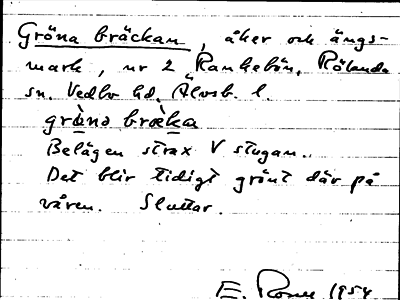 Gröna bräckan, åker och ängs-
mark, nr 2 Rankebön, Rölanda
sn. Vedbo hd. Älvsb. l.
grὰnə brὰka
Belägen strax V stugan.
Det blir tidigt grönt där på
våren. Sluttar.
E. 1954